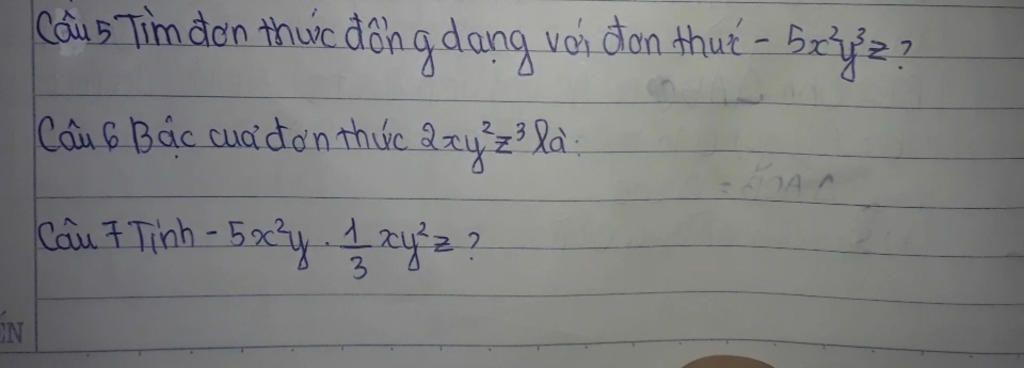 Câu 5 Tìm đơn thức đồng dạng với đơn thức - 5x²y³z?
Câu 6 Bậc của đơn thức 2xy²z³ là:
Câu 7 Tính - 5x²y . 1/3 xy²z?